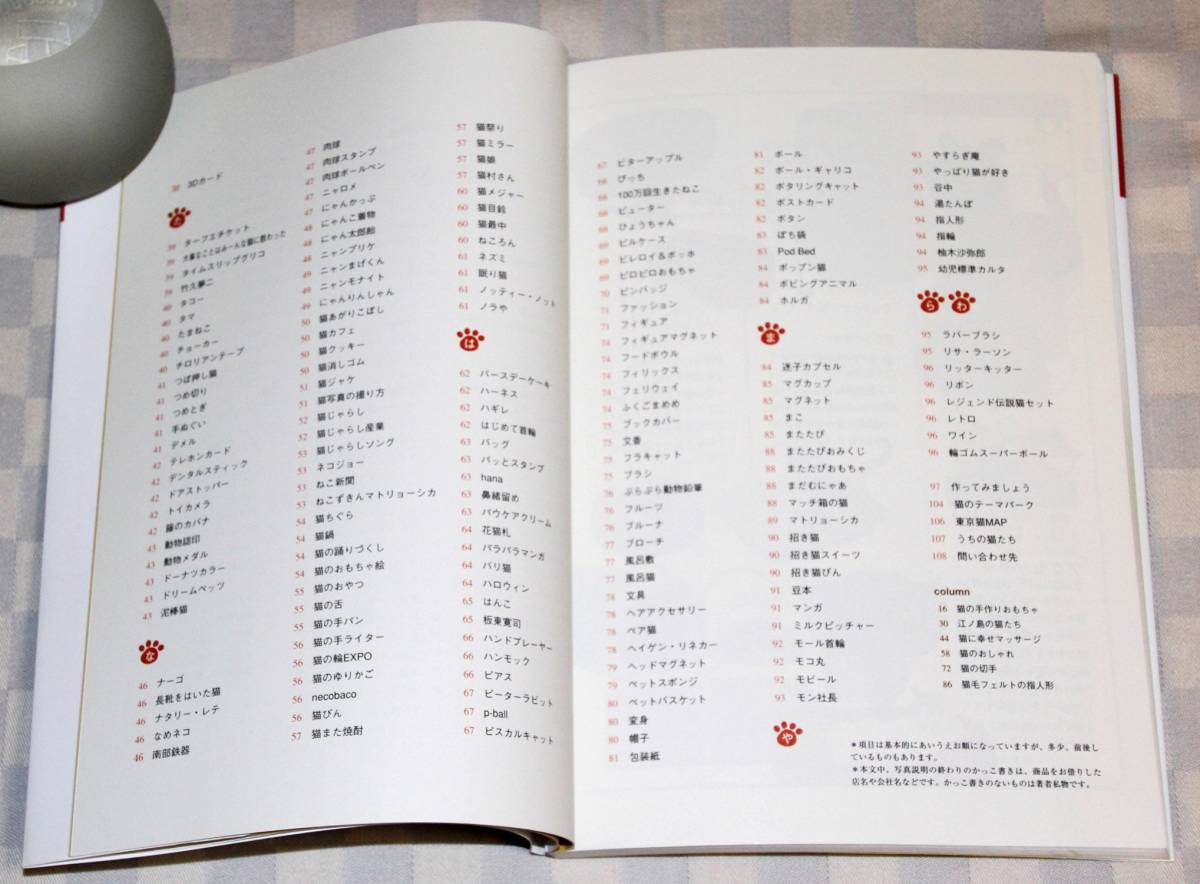 38 3Dカード
た
39 ターフエチケット
39 大事なことはみーんな猫に教わった
39 タイムスリップグリコ
39 竹久夢二
40 タコー
40 タマ
40 たまねこ
40 チョーカー
40 チロリアンテープ
41 つぼ押し猫
41 つめ切り
41 つめとぎ
41 手ぬぐい
41 デメル
42 テレホンカード
42 デンタルスティック
42 ドアストッパー
42 トイカメラ
42 籐のカバナ
43 動物認印
43 動物メダル
43 ドーナツカラー
43 ドリームペッツ
43 泥棒猫
な
46 ナーゴ
46 長靴をはいた猫
46 ナタリー・レテ
46 なめネコ
46 南部鉄器
47 肉球
47 肉球スタンプ
47 肉球ボールペン
47 ニャロメ
47 にゃんかっぷ
48 にゃんこ着物
48 にゃん太郎飴
48 ニャンプリケ
49 ニャンまげくん
49 ニャンモナイト
49 にゃんりんしゃん
50 猫あがりこぼし
50 猫カフェ
50 猫クッキー
50 猫消しゴム
51 猫ジャケ
51 猫写真の撮り方
52 猫じゃらし
52 猫じゃらし産業
53 猫じゃらしソング
53 ネコジョー
53 ねこ新聞
53 ねこずきんマトリョーシカ
54 猫ちぐら
54 猫鍋
54 猫の踊りづくし
54 猫のおもちゃ絵
55 猫のおやつ
55 猫の舌
55 猫の手パン
56 猫の手ライター
56 猫の輪EXPO
56 猫のゆりかご
56 necobaco
56 猫びん
57 猫また焼酎
57 猫祭り
57 猫ミラー
57 猫娘
57 猫村さん
60 猫メジャー
60 猫目鈴
60 猫最中
60 ねころん
61 ネズミ
61 眠り猫
61 ノッティー・ノット
61 ノラや
は
62 バースデーケーキ
62 ハーネス
62 ハギレ
62 はじめて首輪
63 バッグ
63 パッとスタンプ
63 hana
63 鼻緒留め
63 パウケアクリーム
64 花猫札
64 パラパラマンガ
64 バリ猫
64 ハロウィン
65 はんこ
65 板東寛司
66 ハンドプレーヤー
66 ハンモック
66 ピアス
67 ピーターラビット
67 p-ball
67 ビスカルキャット
67 ビターアップル
68 ぴっち
68 100万回生きたねこ
68 ピューター
68 ひょうちゃん
69 ピルケース
69 ビレロイ&ボッホ
69 ピロピロおもちゃ
70 ピンバッジ
71 ファッション
71 フィギュア
74 フィギュアマグネット
74 フードボウル
74 フィリックス
74 フェリウェイ
74 ふくごまめめ
75 ブックカバー
75 文香
75 フラキャット
75 ブラシ
76 ぶらぶら動物鉛筆
76 フルーツ
76 ブルーナ
77 ブローチ
77 風呂敷
77 風呂猫
78 文具
78 ヘアアクセサリー
78 ペア猫
78 ヘイゲン・リネカー
79 ヘッドマグネット
79 ペットスポンジ
80 ペットバスケット
80 変身
80 帽子
81 包装紙
81 ボール
82 ポール・ギャリコ
82 ポタリングキャット
82 ポストカード
82 ボタン
83 ぽち鍋
83 Pod Bed
84 ポップン猫
84 ボビングアニマル
84 ホルガ
ま
84 迷子カプセル
85 マグカップ
85 マグネット
85 まこ
85 またたび
88 またたびおみくじ
88 またたびおもちゃ
88 まだむにゃあ
88 マッチ箱の猫
89 マトリョーシカ
90 招き猫
90 招き猫スイーツ
90 招き猫びん
91 豆本
91 マンガ
91 ミルクピッチャー
92 モール首輪
92 モコ丸
92 モビール
93 モン社長
や
93 やすらぎ庵
93 やっぱり猫が好き
93 谷中
94 湯たんぽ
94 指人形
94 指輪
94 柚木沙弥郎
95 幼児標準カルタ
ら わ
95 ラバーブラシ
95 リサ・ラーソン
96 リッターキッター
96 リボン
96 レジェンド伝説猫セット
96 レトロ
96 ワイン
96 輪ゴムスーパーボール
97 作ってみましょう
104 猫のテーマパーク
106 東京猫MAP
107 うちの猫たち
108 問い合わせ先
column
16 猫の手作りおもちゃ
30 江ノ島の猫たち
44 猫に幸せマッサージ
58 猫のおしゃれ
72 猫の切手
86 猫毛フェルトの指人形
*項目は基本的にあいうえお順になっていますが、多少、前後し
ているものもあります。
*本文中、写真説明の終わりのかっこ書きは、商品をお借りした
店名や会社名などです。かっこ書きのないものは著者私物です。